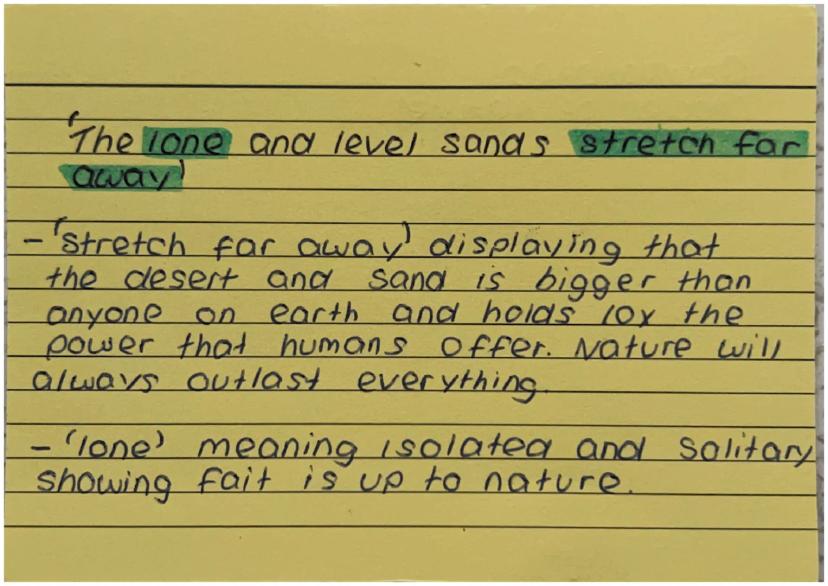 'The lone and level sands stretch far
away'
- 'stretch far away' displaying that
the desert and sand is bigger than
anyone on earth and holds 10x the
power that humans offer. Nature will
always outlast everything.
- 'lone' meaning isolated and solitary
showing fait is up to nature.